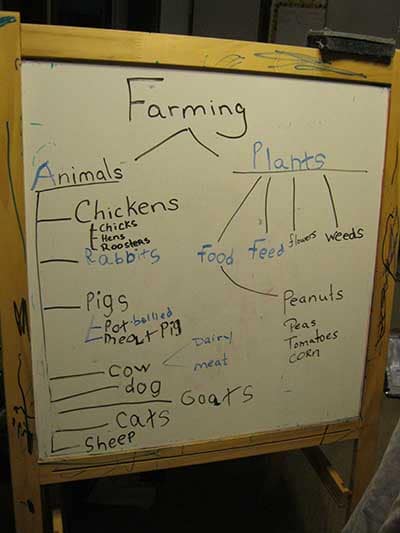 Farming
Animals
Chickens
Chicks
Hens
Roosters
Rabbits
Pigs
Pot bellied
meat Pig
cow
Dairy
meat
dog
Goats
Cats
Sheep
Plants
Food Feed flowers weeds
Peanuts
Peas
Tomatoes
CORN